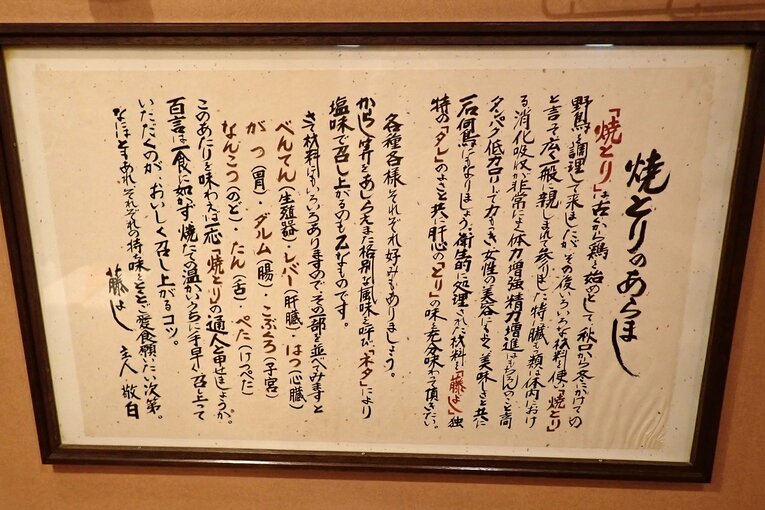 焼とりのあらまし
「焼とり」は古くから鶏を始めとして秋口から冬にかけての
野鳥を調理して来ましたが、その後いろいろな材料を使い「焼とり」
と言って広く一般に親しまれて参りました。特に臓もつ類は体内におけ
る消化吸収が非常によく体力増強精力増進はもちろんのこと高
タンパク低カロリーで力もつき、女性の美容にもよく美味しさと共に
一石何鳥にもなりましょう。衛生的に処理された材料を「藤よし」独
特の「タレ」のよさと共に肝心の「とり」の味を充分味わって頂きたい。
各種各様それぞれ好みもありましょう。
からし芥をあしらえばまた格別な風味を呼び、「ネタ」により
塩味で召し上がるのも乙なものです。
さて材料にもいろいろありますので、その一部を並べてみますと
べんてん(生殖器)・レバー(肝臓)・はつ(心臓)
がつ(胃)・ダルム(腸)・こぶくろ(子宮)
なんこう(のど)・たん(舌)・ぺた(けつぺた)
このあたりを味わえば一応「焼とりの通人」と申せましょうか。
百言は一食に如かず、焼たての温かいうちに手早く召し上って
いただくのが、おいしく召し上がるコツ。
なにはともあれ、それぞれの持ち味をどうぞご愛食願いたい次第。
藤よし 主人 敬白